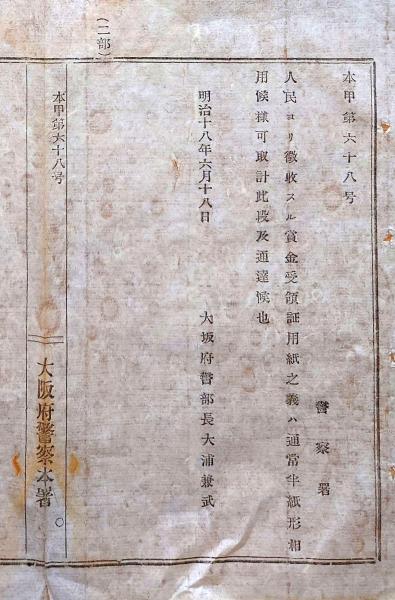 本甲第六十八号
警察署
人民ヨリ徴收スル賞金受領証用紙之義ハ通常半紙形相
用候様可取計此段及通達候也
明治十八年六月十八日
大坂府警部長大浦兼武
(二部)
本甲第六十八号
大阪府警察本署